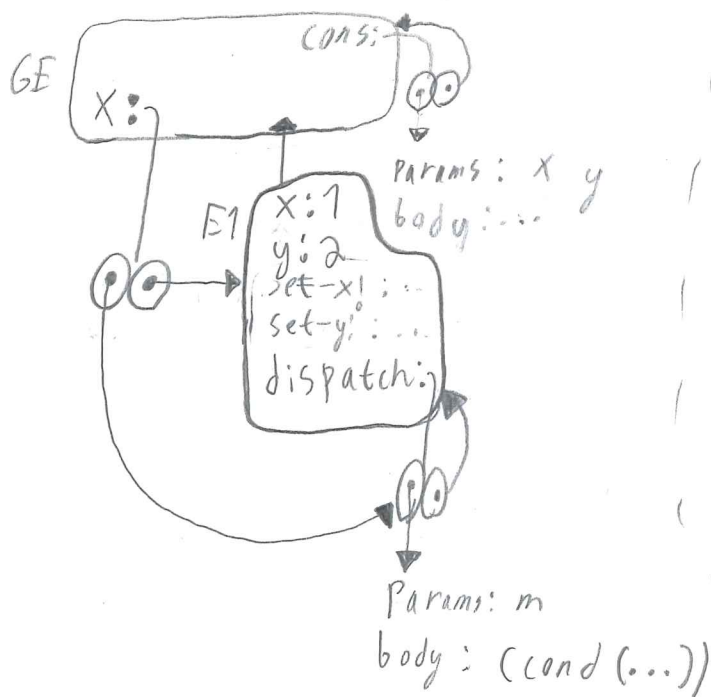 cons:
GE
X:
Params: x y
body:...
E1
x:1
y:2
set-x!:..
set-y!:...
dispatch:
Params: m
body: (cond (...))